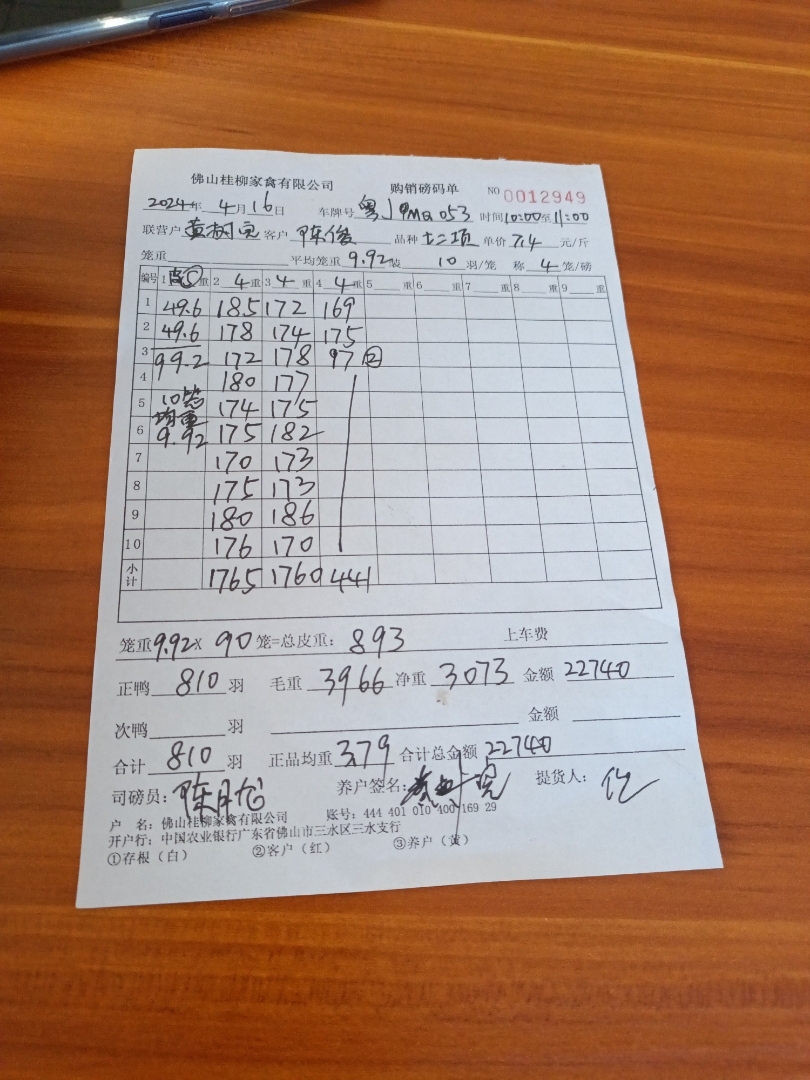 佛山桂柳家禽有限公司 购销磅码单 NO 0012949
2024年 4月16日 车牌号 粤J 053 时间10:00至11:00
联营户 黄 客户 陈俊 品种 土二项 单价 7.4 元/斤
笼重 平均笼重 9.92 装 10 羽/笼 称 4 笼/磅
编号 1 皮⑤ 重 2 4 重 3 4 重 4 4 重 5 重 6 重 7 重 8 重 9 重
1 49.6 185 172 169
2 49.6 178 174 175
3 99.2 172 178 97 ②
4 180 177
5 10笼 174 175
6 均重 9.92 175 182
7 170 173
8 175 173
9 180 186
10 176 170
小计 1765 1760 441
笼重 9.92 X 90 笼=总皮重: 893 上车费
正鸭 810 羽 毛重 3966 净重 3073 金额 22740
次鸭 羽 金额
合计 810 羽 正品均重 3.79 合计总金额 22740
司磅员: 陈月 养户签名: 提货人:
户 名: 佛山桂柳家禽有限公司 账号: 444 401 010 400 169 29
开户行: 中国农业银行广东省佛山市三水区三水支行
①存根(白) ②客户(红) ③养户(黄)